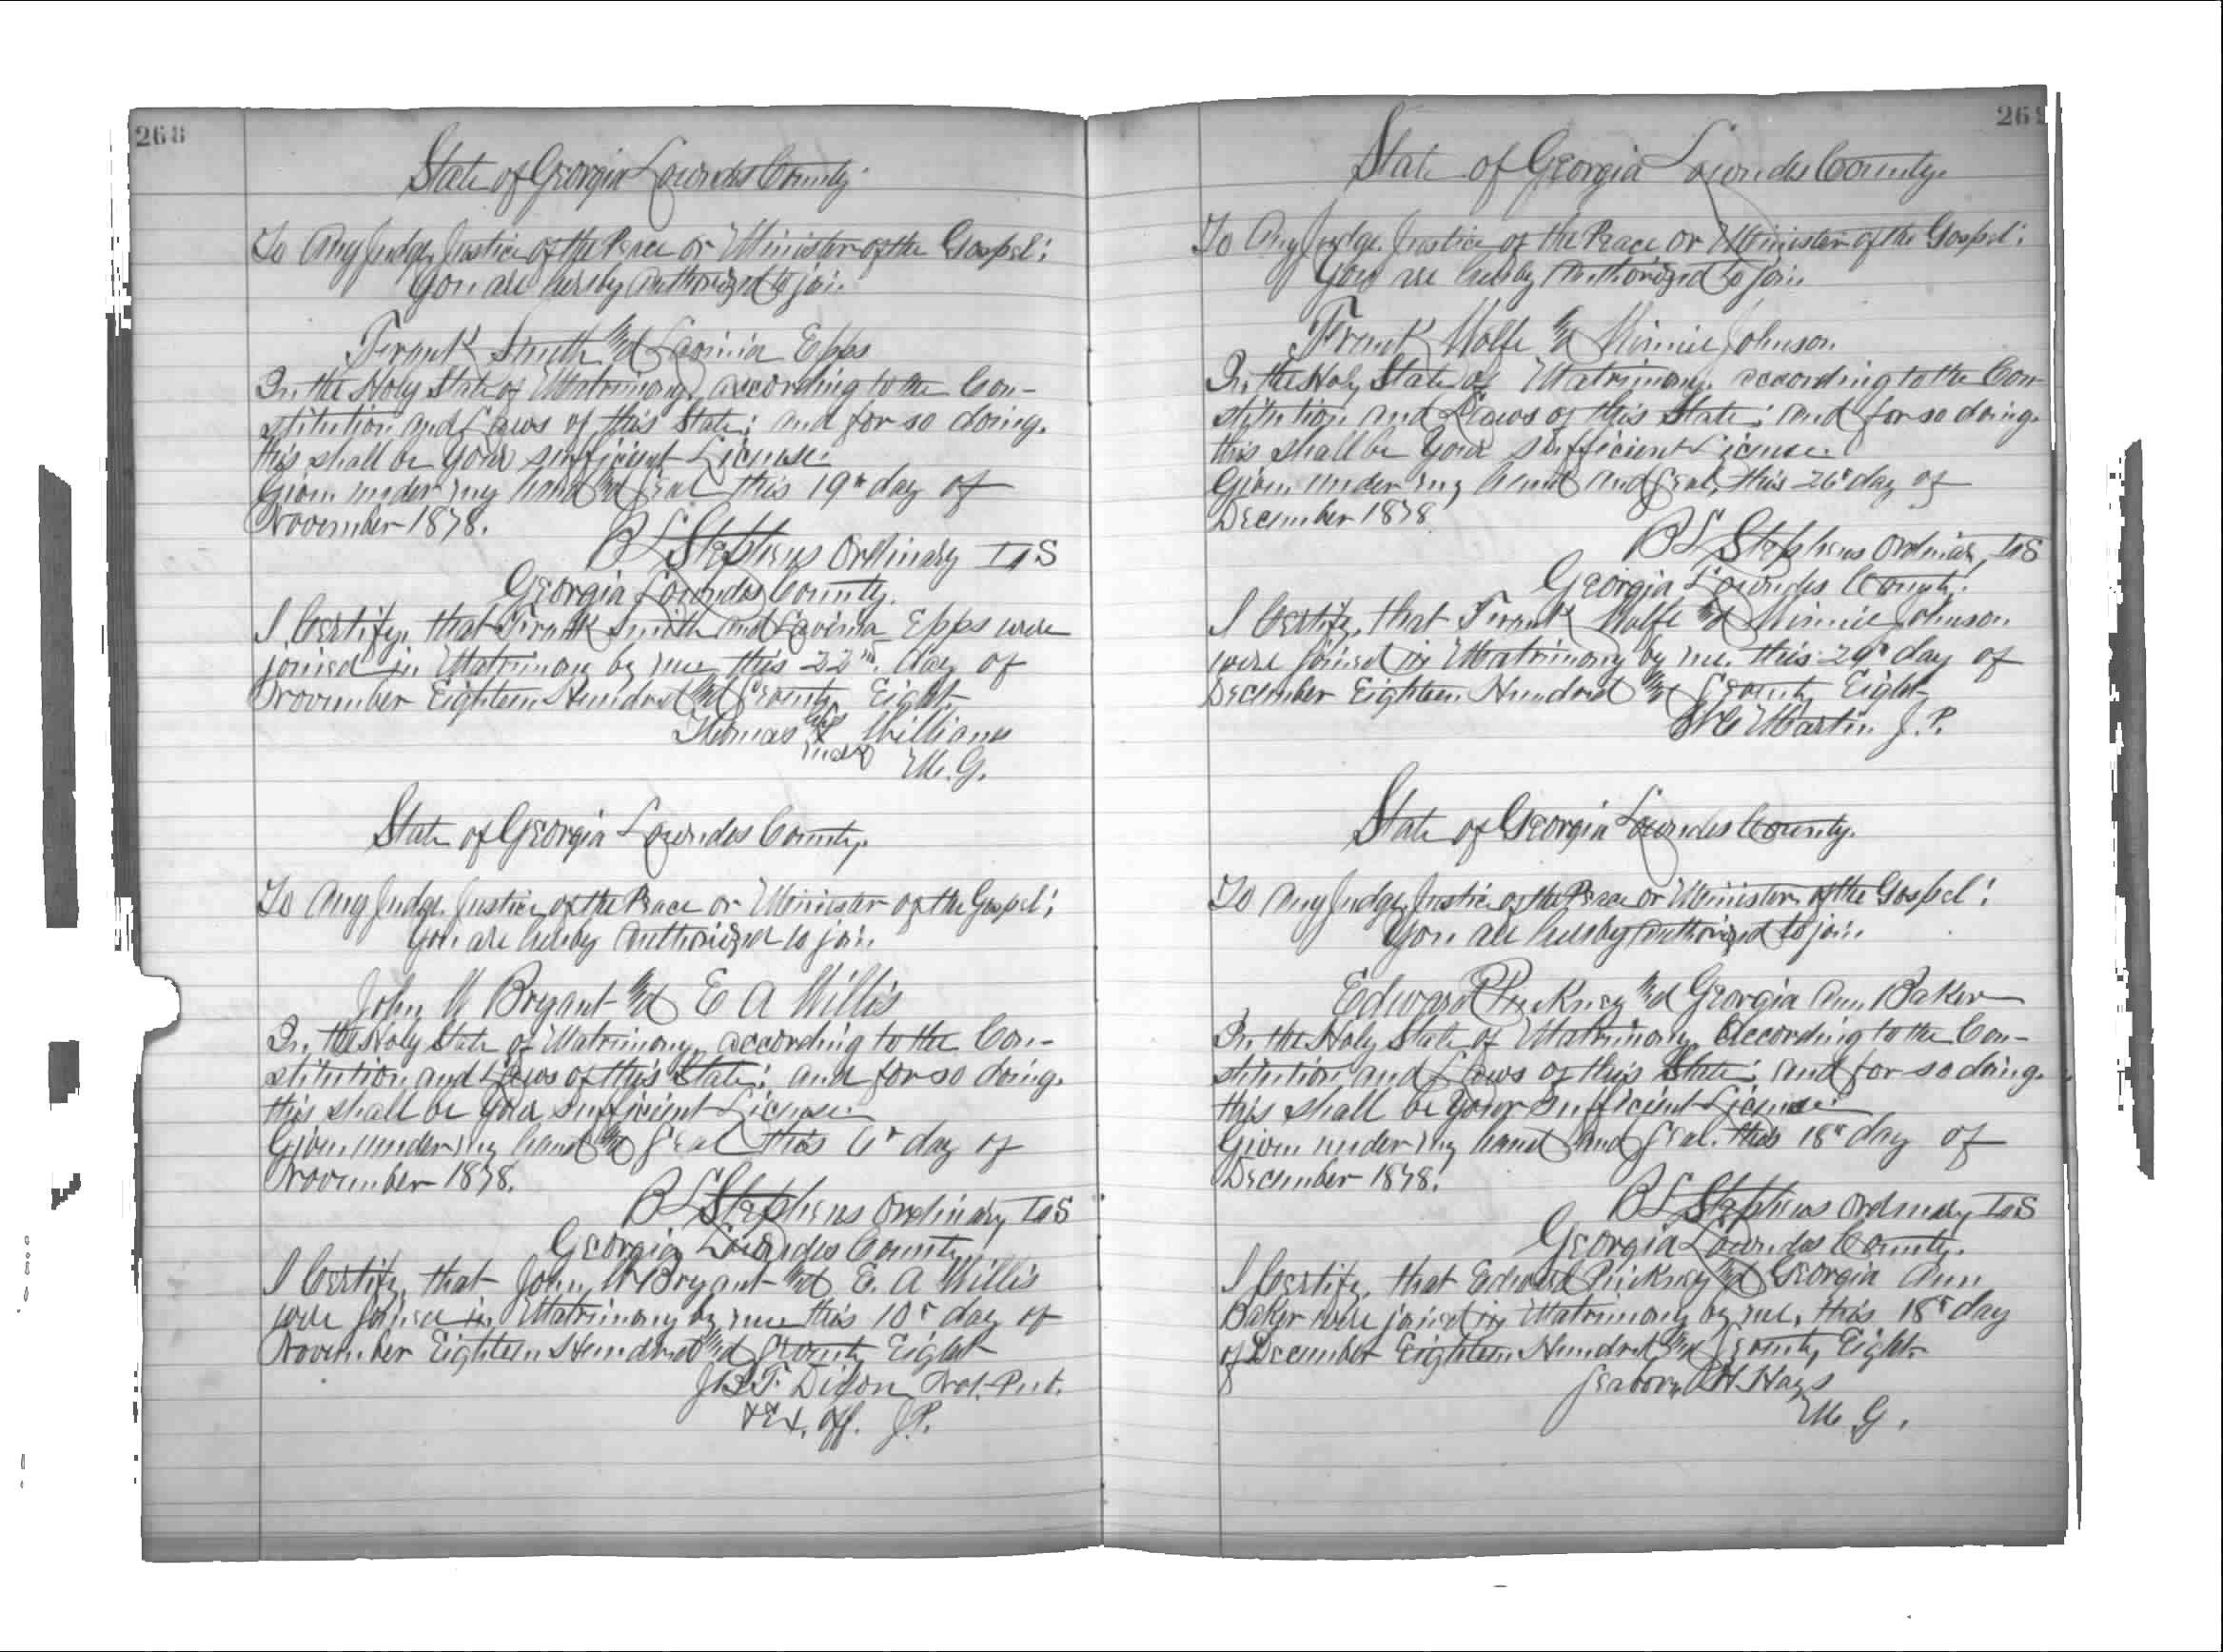 268
State of Georgia Lowndes County.
To Any Judge, Justice of the Peace or Minister of the Gospel:
You are hereby authorized to join
Frank Smith and Lavinia Epps
In the Holy State of Matrimony, according to the Con-
stitution and Laws of this State; and for so doing.
this shall be your sufficient License.
Given under my hand and seal this 19" day of
November 1878.
B L Stephens Ordinary L.S
Georgia Lowndes County.
I Certify, that Frank Smith and Lavinia Epps were
joined in Matrimony by me this 22nd day of
November Eighteen Hundred and Seventy Eight
his
Thomas X Williams
mark
M. G.
State of Georgia Lowndes County.
To Any Judge, Justice of the Peace or Minister of the Gospel:
You are hereby authorized to join
John W Bryant and E A Willis
In the Holy State of Matrimony according to the Con-
stitution and Laws of this State: and for so doing.
this shall be your sufficient License.
Given under my hand and seal this 6" day of
November 1878.
B L Stephens Ordinary L.S
Georgia Lowndes County
I Certify, that John W Bryant and E. A Willis
were joined in Matrimony by me this 10" day of
November Eighteen Hundred and Seventy Eight
J.B.T. Not. Pub.
& Ex. Off. J.P.
State of Georgia Lowndes County.
To Any Judge, Justice of the Peace or Minister of the Gospel:
You are hereby authorized to join
Frank Wolfe and Minnie Johnson
In the Holy State of Matrimony, according to the Con-
stitution and Laws of this State; and for so doing.
this shall be your sufficient License.
Given under my hand and seal, this 26" day of
December 1878
B L Stephens Ordinary L.S
Georgia Lowndes County.
I Certify, that Frank Wolfe and Minnie Johnson
were joined in Matrimony by me, this 29" day of
December Eighteen Hundred and Seventy Eight
Martin J.P.
State of Georgia Lowndes County.
To Any Judge, Justice of the Peace or Minister of the Gospel:
You are hereby authorized to join
Edward Pinkney and Georgia Ann Baker
In the Holy State of Matrimony, According to the Con-
stitution and Laws of this State; and for so doing.
this shall be your sufficient License.
Given under my hand and seal. this 18" day of
December 1878.
B L Stephens Ordinary L.S
Georgia Lowndes County.
I Certify, that Edward Pinkney and Georgia Ann
Baker were joined in Matrimony by me, this 18" day
of December Eighteen Hundred and Seventy Eight
Seaborn H. Hays
M. G.